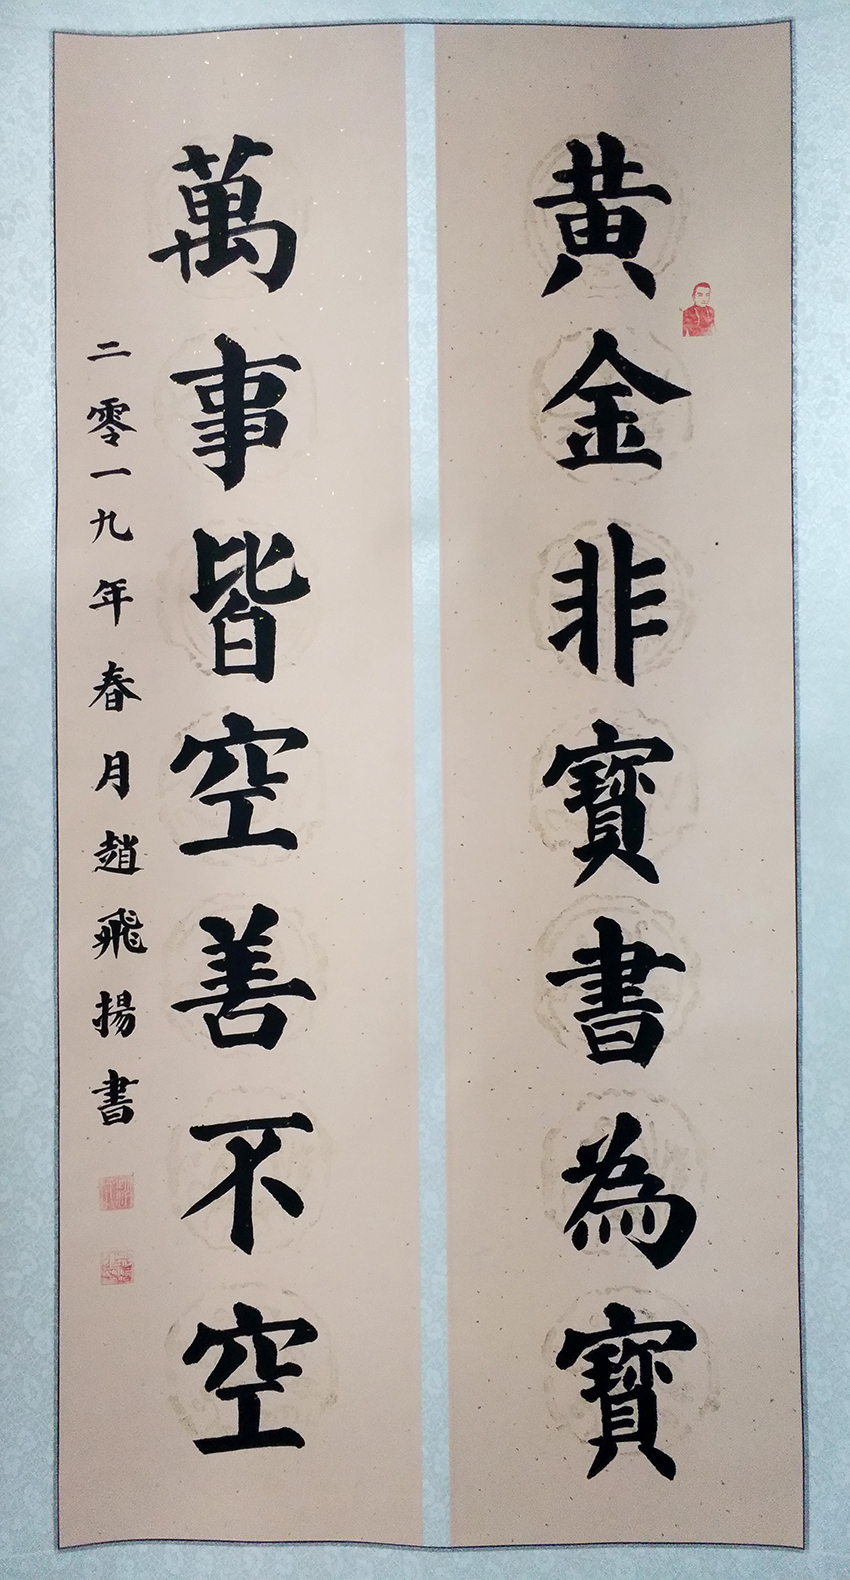 黄金非寶書為寶
萬事皆空善不空
二零一九年春月趙飛揚書